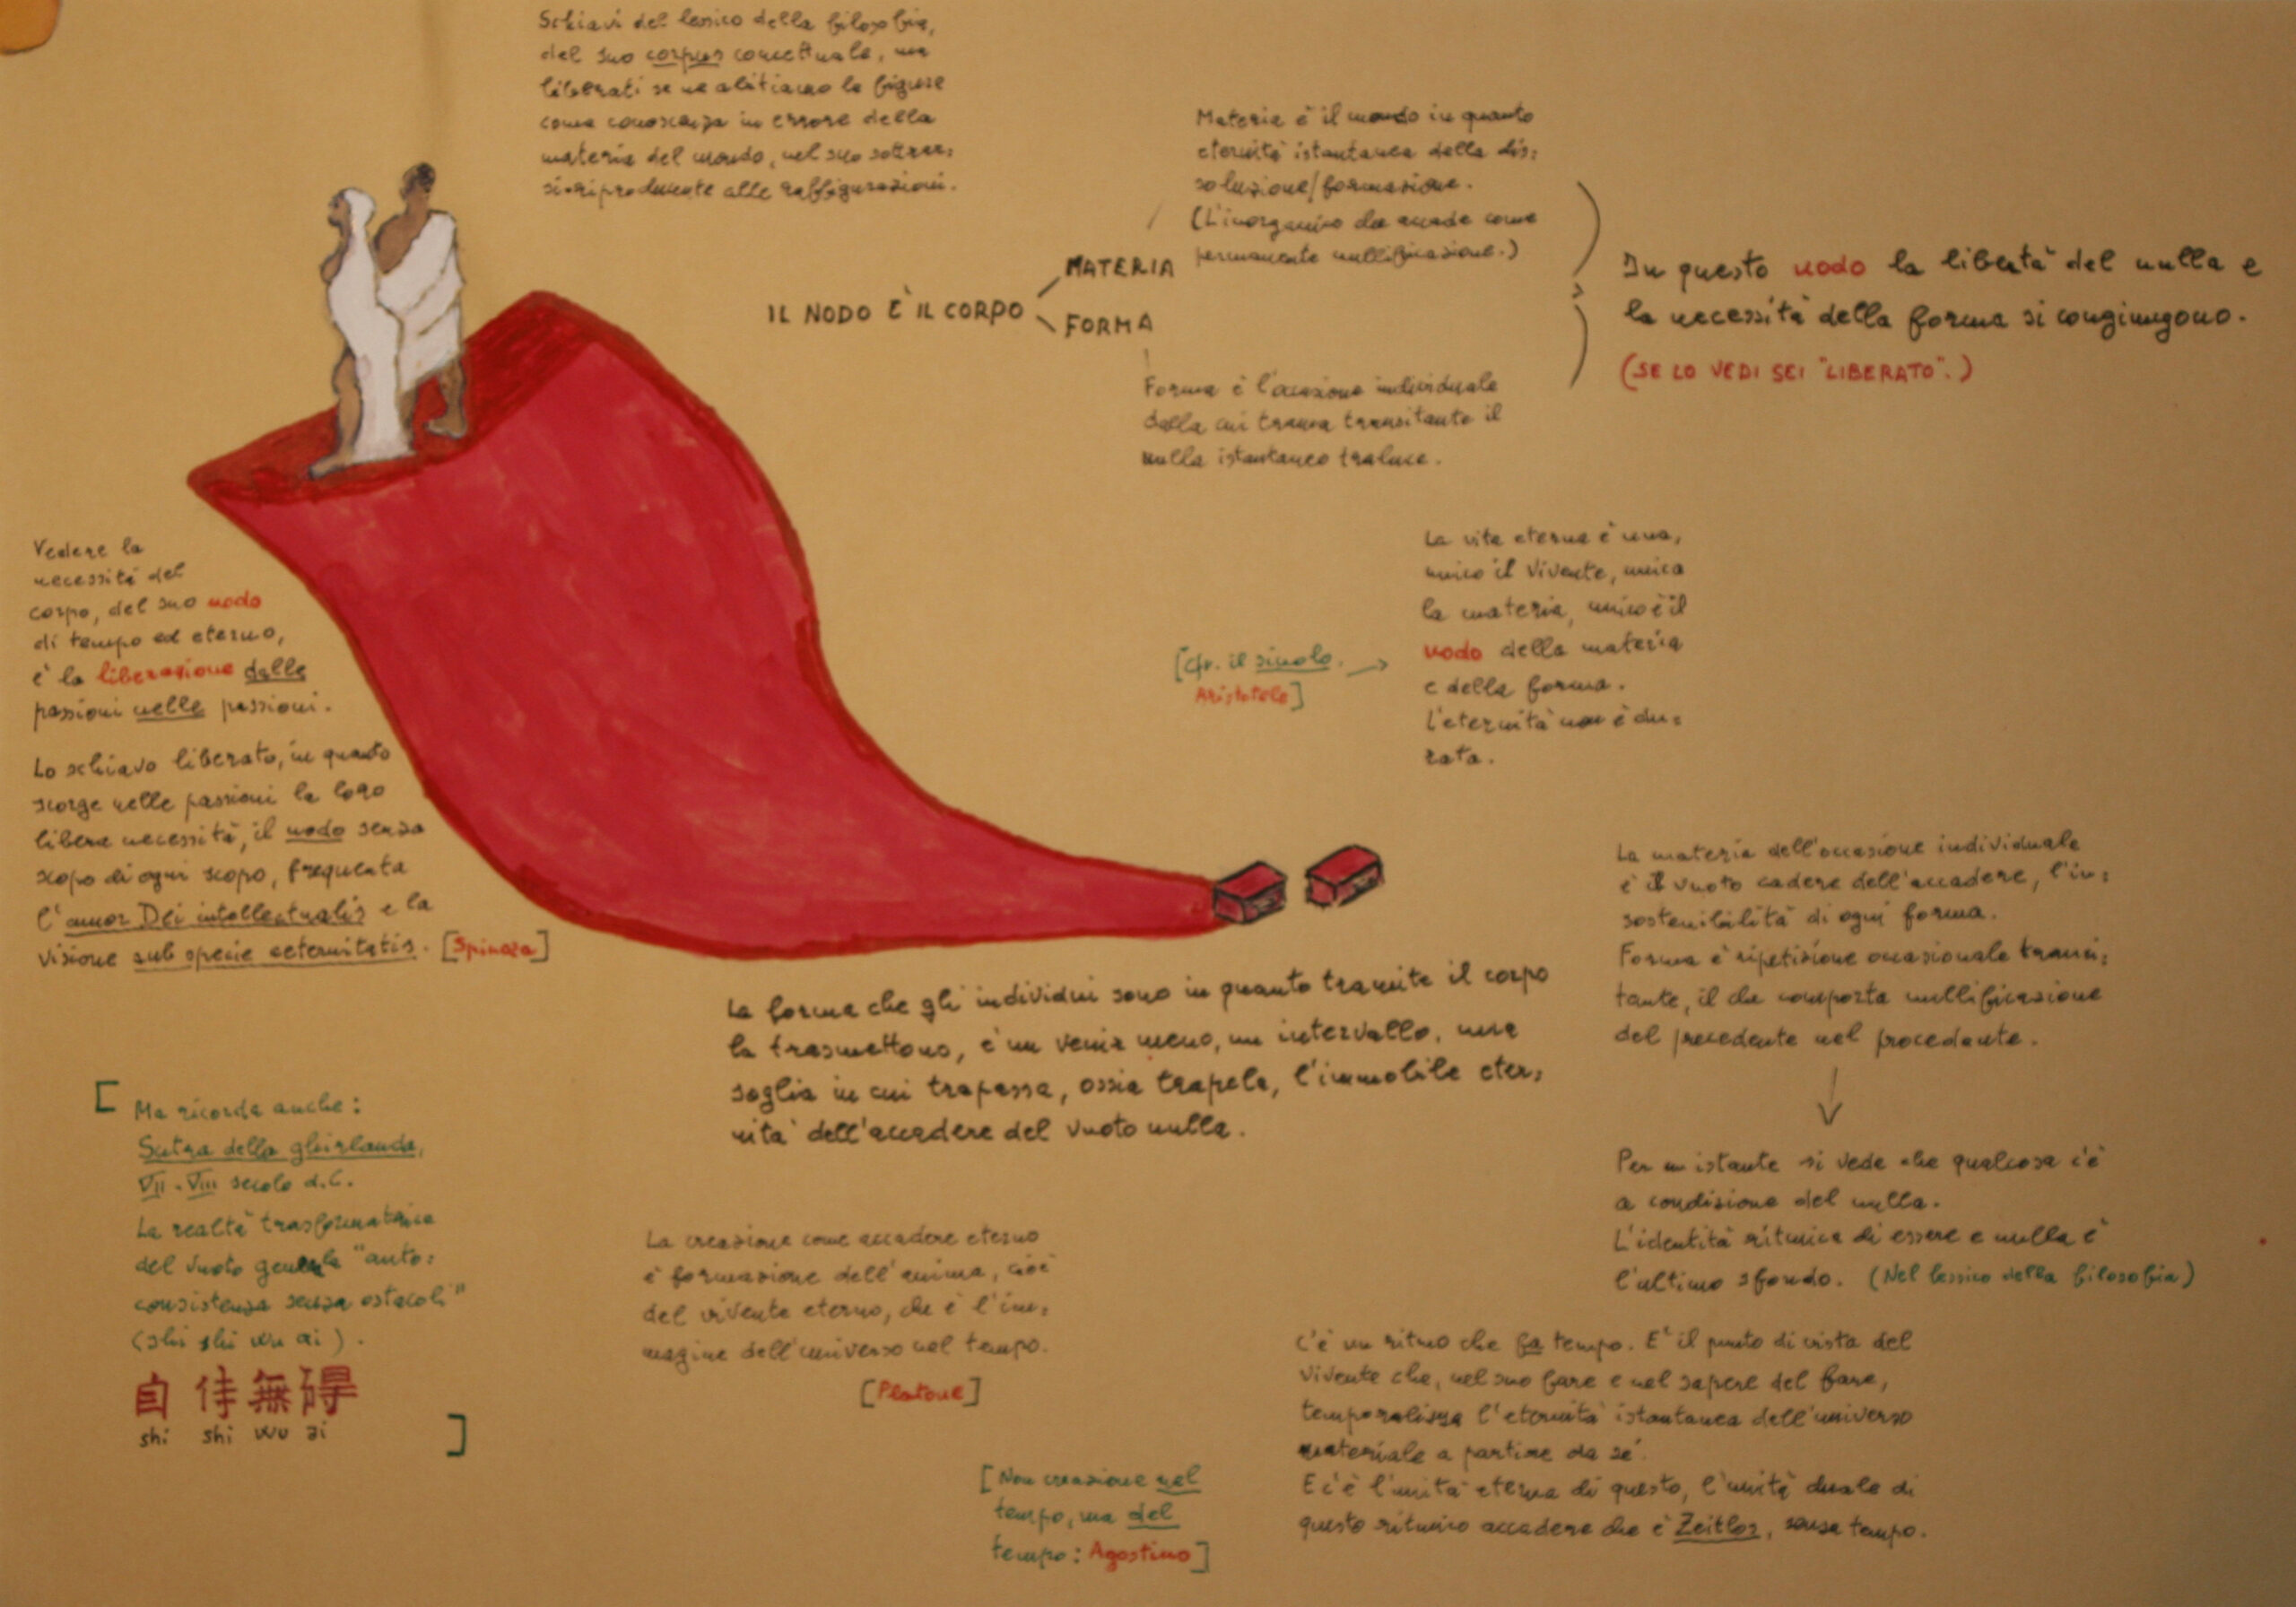 Schiavi del lessico della filosofia,
del suo corpus concettuale, ma
liberati se ne abitiamo le figure
come conoscenza in errore della
materia del mondo, nel suo sottrar=
si-riproducente alle raffigurazioni.
IL NODO È IL CORPO
MATERIA
FORMA
Materia è il mondo in quanto
eternità istantanea della dis=
soluzione/formazione.
(L'inorganico che accade come
permanente nullificazione.)
Forma è l'occasione individuale
dalla cui trama transitante il
nulla istantaneo traluce.
In questo nodo la libertà del nulla e
la necessità della forma si congiungono.
(SE LO VEDI SEI "LIBERATO".)
Vedere la
necessità del
corpo, del suo nodo
di tempo ed eterno,
è la liberazione dalle
passioni nelle passioni.
Lo schiavo liberato, in quanto
scorge nelle passioni la loro
libera necessità, il nodo senza
scopo di ogni scopo, frequenta
l'amor Dei intellectualis e la
visione sub specie aeternitatis. [Spinoza]
[Cfr. il sinolo.
Aristotele]
La vita eterna è una,
unico il vivente, unica
la materia, unico è il
nodo della materia
e della forma.
L'eternità non è du=
rata.
La materia dell'occasione individuale
è il vuoto cadere dell'accadere, l'in=
sostenibilità di ogni forma.
Forma è ripetizione occasionale transi=
tante, il che comporta nullificazione
del precedente nel procedente.
Per un istante si vede che qualcosa c'è
a condizione del nulla.
L'identità ritmica di essere e nulla è
l'ultimo sfondo. (Nel lessico della filosofia)
La forma che gli individui sono in quanto tramite il corpo
la trasmettono, è un venir meno, un intervallo, una
soglia in cui trapassa, ossia trapela, l'immobile eter=
nità dell'accadere del vuoto nulla.
[Ma ricorda anche:
Sutra della ghirlanda,
VII-VIII secolo d.C.
La realtà trasformatrice
del vuoto genera la "auto=
consistenza senza ostacoli"
(shi shi wu ai).
自 侍 無 碍
shi shi wu ai
]
La creazione come accadere eterno
è formazione dell'anima, cioè
del vivente eterno, che è l'im=
magine dell'universo nel tempo.
[Platone]
[Non creazione nel
tempo, ma del
tempo: Agostino]
C'è un ritmo che fa tempo. E' il punto di vista del
vivente che, nel suo fare e nel sapere del fare,
temporalizza l'eternità istantanea dell'universo
materiale a partire da sé.
E c'è l'unità eterna di questo, l'unità duale di
questo ritmico accadere che è Zeitlos, senza tempo.